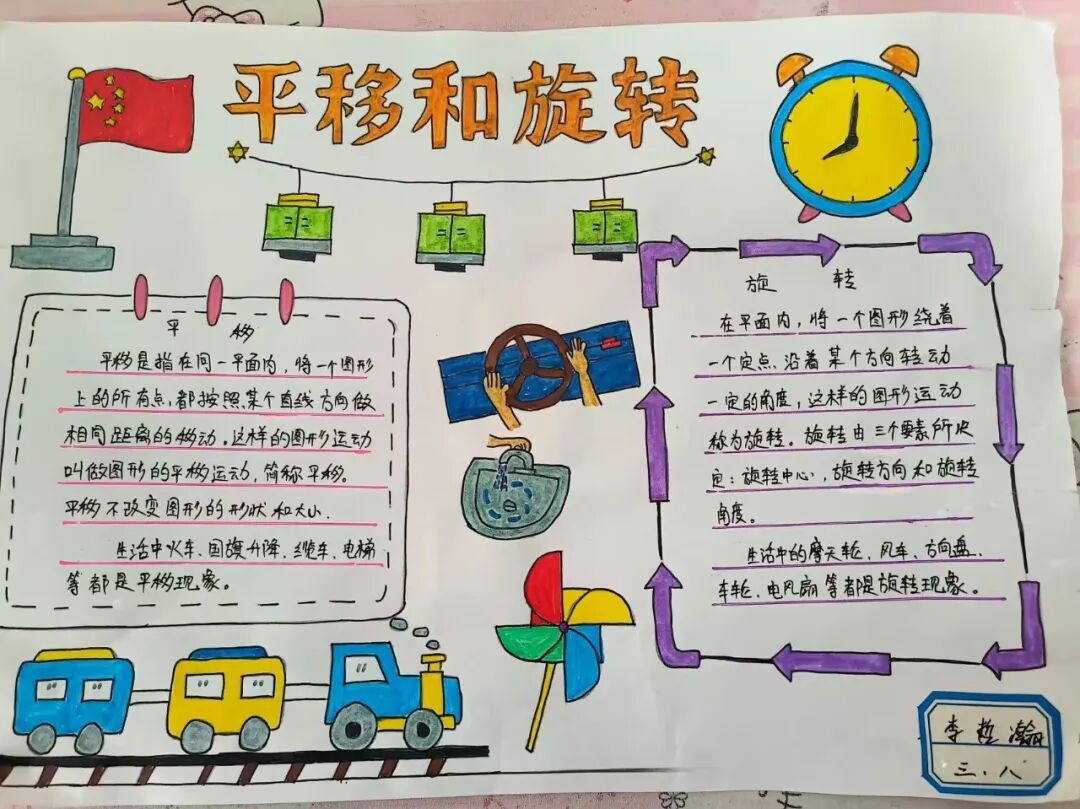 平移和旋转
平移
平移是指在同一平面内，将一个图形
上的所有点，都按照某个直线方向做
相同距离的移动。这样的图形运动
叫做图形的平移运动，简称平移。
平移不改变图形的形状和大小.
生活中火车、国旗升降、缆车、电梯
等都是平移现象。
旋转
在平面内，将一个图形绕着
一个定点沿着某个方向转动
一定的角度，这样的图形运动
称为旋转。旋转由三个要素所决
定：旋转中心，旋转方向和旋转
角度。
生活中的摩天轮、风车、方向盘、
车轮、电风扇等都是旋转现象。
李哲瀚
三.八